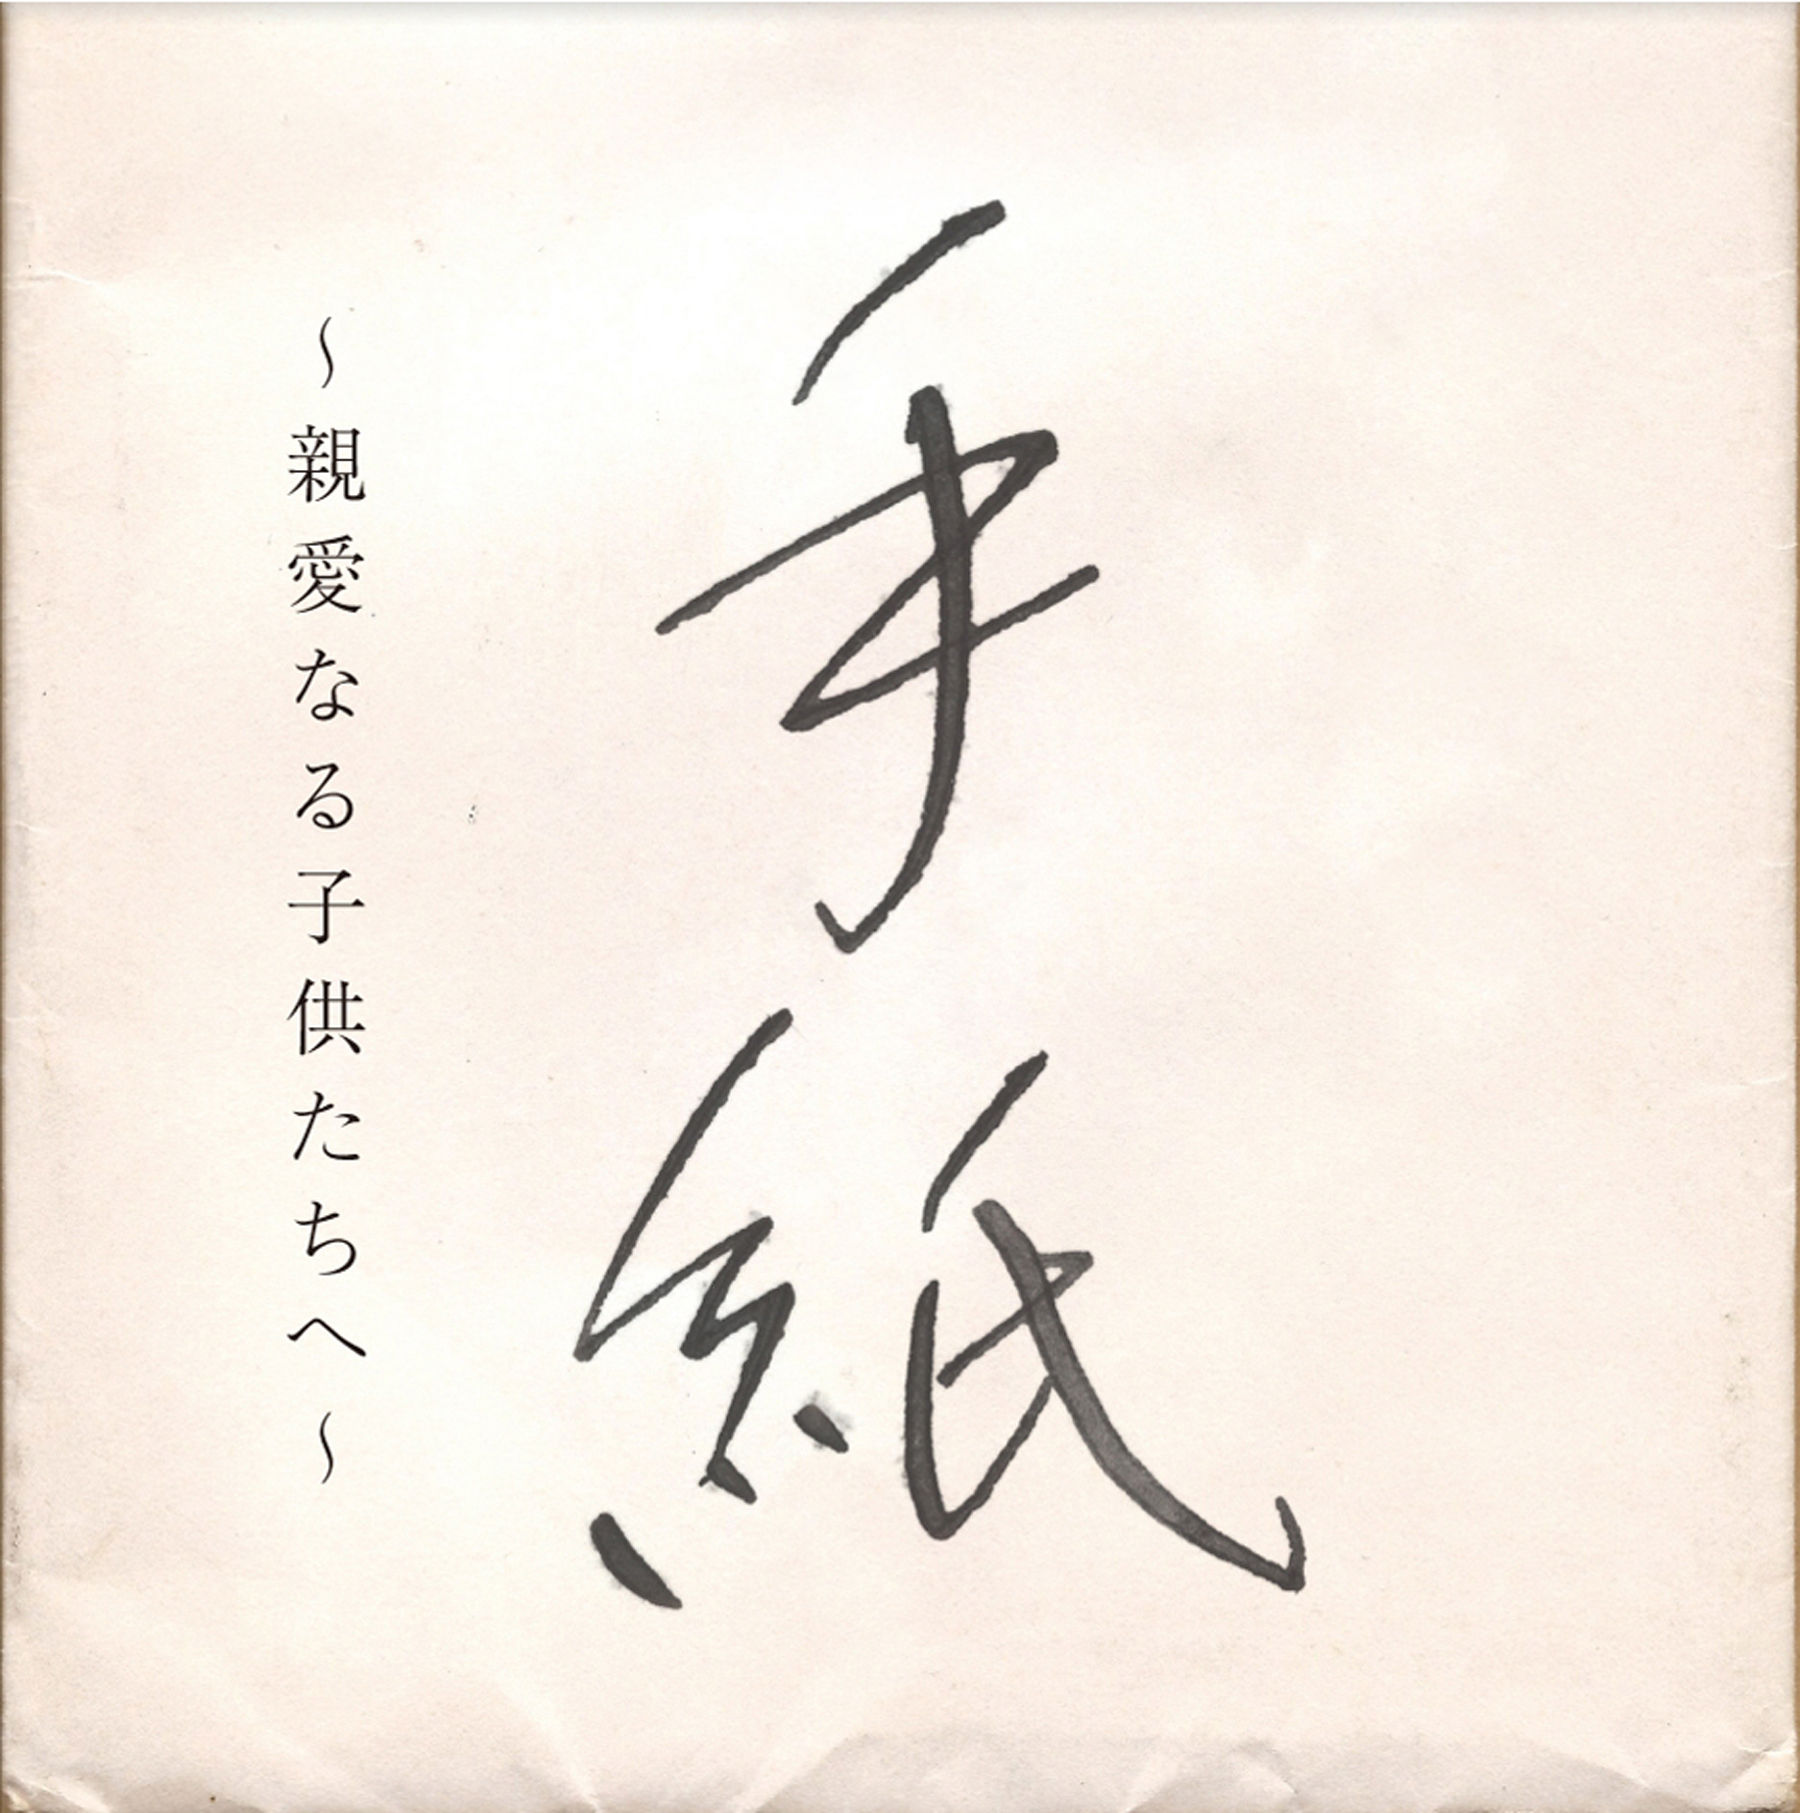 手紙
〜親愛なる子供たちへ〜